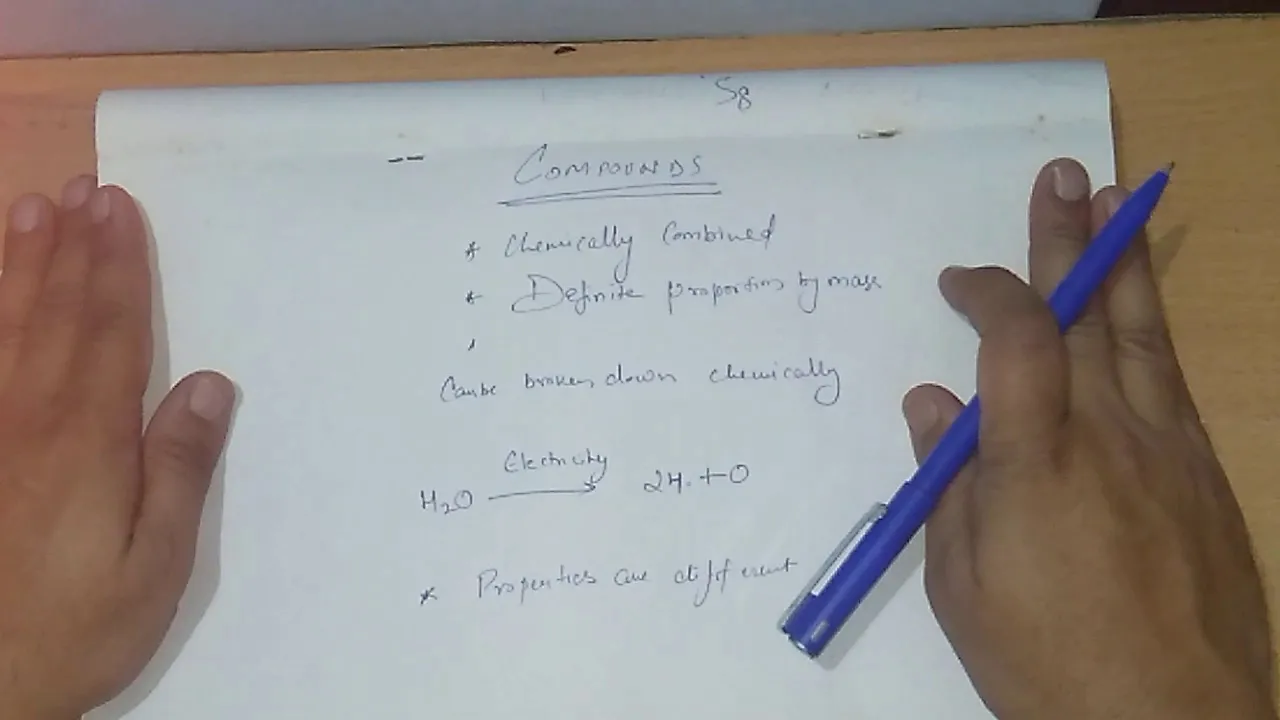 S8
COMPOUNDS
* Chemically Combined
* Definite proportion by mass
Can be broken down chemically
Electricity
H₂O → 2H. + O
* Properties are different